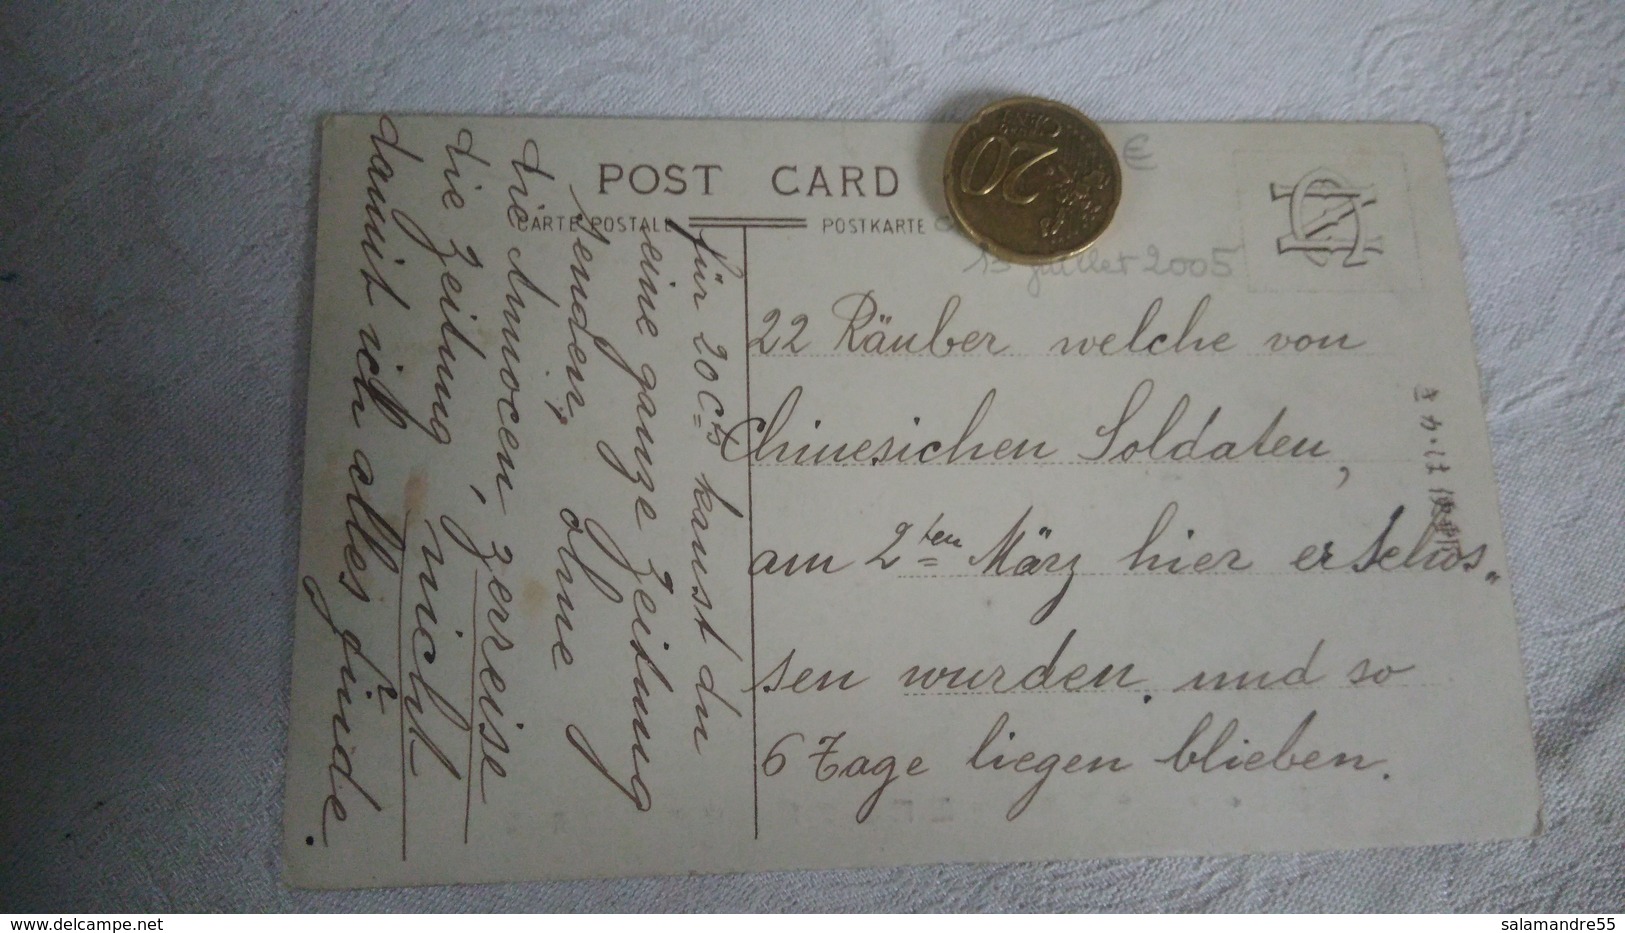 POST CARD
CARTE POSTALE
POSTKARTE
20
€
15 juillet 2005
22 Räuber welche von
Chinesichen Soldaten,
am 2ten März hier erschos„
sen wurden. und so
6 Tage liegen blieben.
für 20 Cts kanst du
eine ganze Zeitung
senden, ohne
die Annocen, zerreise
die Zeitung nicht
damit ich alles finde.
salamandre55